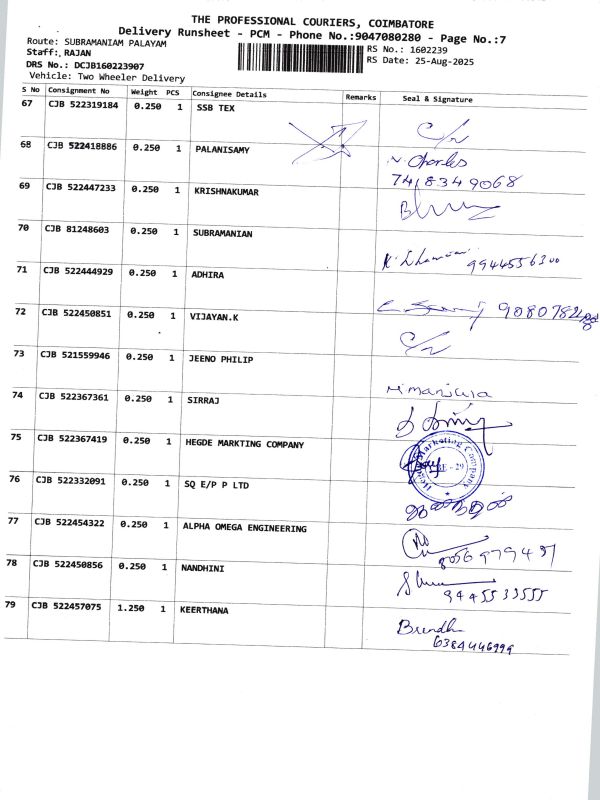 THE PROFESSIONAL COURIERS, COIMBATORE
Delivery Runsheet - PCM - Phone No.:9047080280 - Page No.:7
Route: SUBRAMANIAM PALAYAM
RS No.: 1602239
Staff: RAJAN
RS Date: 25-Aug-2025
DRS No.: DCJB160223907
Vehicle: Two Wheeler Delivery
S No Consignment No Weight PCS Consignee Details Remarks Seal & Signature
67 CJB 522319184 0.250 1 SSB TEX
C/n
68 CJB 522418886 0.250 1 PALANISAMY
N. Charles
7418349068
69 CJB 522447233 0.250 1 KRISHNAKUMAR
70 CJB 81248603 0.250 1 SUBRAMANIAN
9944556300
71 CJB 522444929 0.250 1 ADHIRA
72 CJB 522450851 0.250 1 VIJAYAN.K
C/n
73 CJB 521559946 0.250 1 JEENO PHILIP
74 CJB 522367361 0.250 1 SIRRAJ
75 CJB 522367419 0.250 1 HEGDE MARKTING COMPANY
Hegde Marketing Company
76 CJB 522332091 0.250 1 SQ E/P P LTD
77 CJB 522454322 0.250 1 ALPHA OMEGA ENGINEERING
78 CJB 522450856 0.250 1 NANDHINI
9445533555
79 CJB 522457075 1.250 1 KEERTHANA
Brindha
6384446999